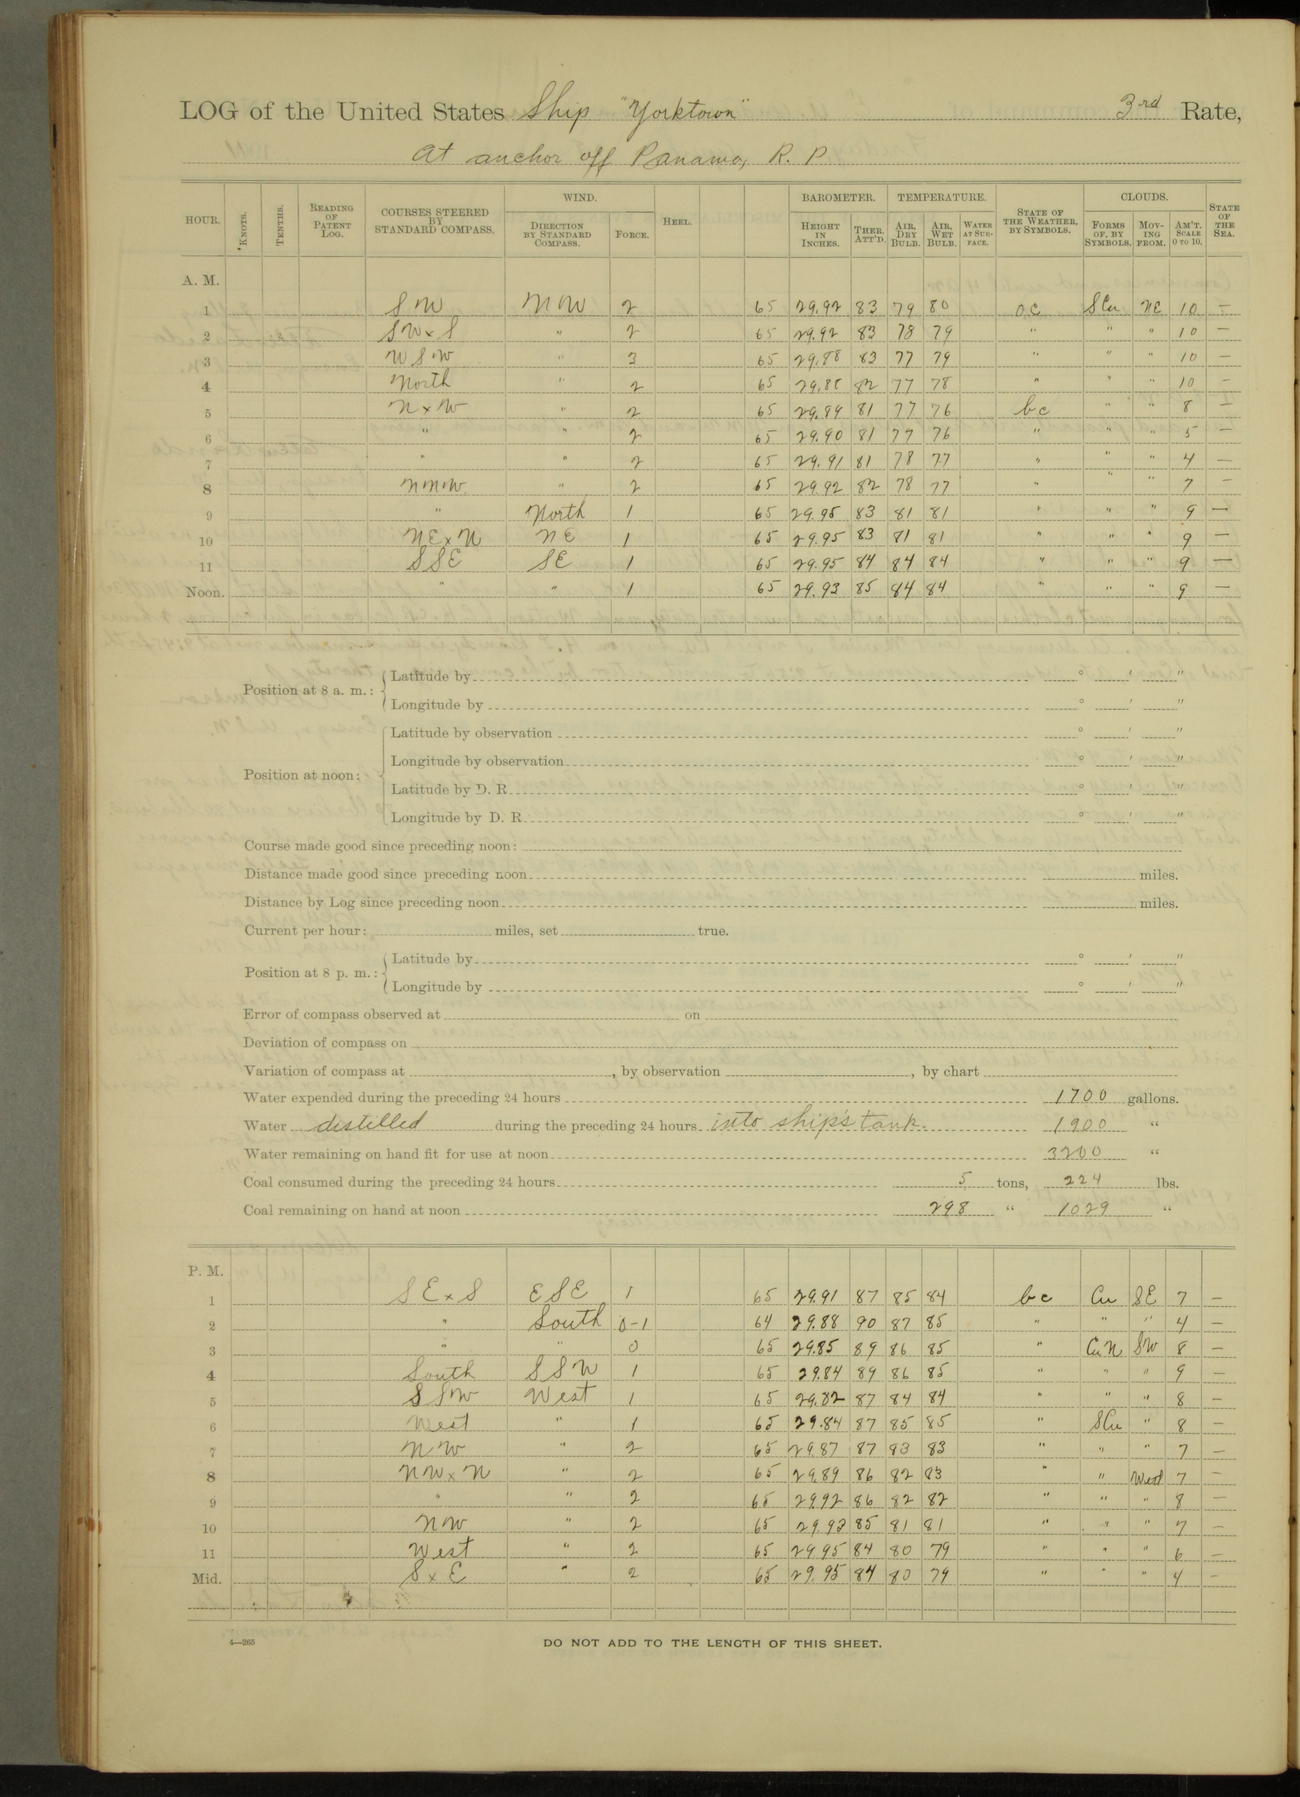 LOG of the United States Ship "Yorktown" 3rd Rate,
At anchor off Panama, R. P.
HOUR. *KNOTS. TENTHS. READING OF PATENT LOG. COURSES STEERED BY STANDARD COMPASS. WIND. DIRECTION BY STANDARD COMPASS. FORCE. HEEL. BAROMETER. HEIGHT IN INCHES. THER. ATT'D. TEMPERATURE. AIR, DRY BULB. AIR, WET BULB. WATER AT SURFACE. STATE OF THE WEATHER, BY SYMBOLS. CLOUDS. FORMS OF, BY SYMBOLS. MOVING FROM. AM'T. SCALE 0 TO 10. STATE OF THE SEA.
A. M.
1 SW NW 2 65 29.92 83 79 80 oc SCu NE 10 —
2 SWxS " 2 65 29.92 83 78 79 " " " 10 —
3 WSW " 3 65 29.88 83 77 79 " " " 10 —
4 North " 2 65 29.88 82 77 78 " " " 10 —
5 NxW " 2 65 29.89 81 77 76 bc " " 8 —
6 " " 2 65 29.90 81 77 76 " " " 5 —
7 " " 2 65 29.91 81 78 77 " " " 4 —
8 NNW " 2 65 29.92 82 78 77 " " " 7 —
9 " North 1 65 29.95 83 81 81 " " " 9 —
10 NExN NE 1 65 29.95 83 81 81 " " " 9 —
11 SSE SE 1 65 29.95 84 84 84 " " " 9 —
Noon. " " 1 65 29.93 85 84 84 " " " 9 —
Position at 8 a. m.: Latitude by ° ' "
Longitude by ° ' "
Position at noon: Latitude by observation ° ' "
Longitude by observation ° ' "
Latitude by D. R. ° ' "
Longitude by D. R. ° ' "
Course made good since preceding noon:
Distance made good since preceding noon miles.
Distance by Log since preceding noon miles.
Current per hour: miles, set true.
Position at 8 p. m.: Latitude by ° ' "
Longitude by ° ' "
Error of compass observed at on
Deviation of compass on
Variation of compass at , by observation , by chart
Water expended during the preceding 24 hours 1700 gallons.
Water distilled during the preceding 24 hours into ship's tank. 1900 "
Water remaining on hand fit for use at noon 3200 "
Coal consumed during the preceding 24 hours 5 tons, 224 lbs.
Coal remaining on hand at noon 298 " 1029 "
P. M.
1 SExS ESE 1 65 29.91 87 85 84 bc Cu SE 7 —
2 " South 0-1 64 29.88 90 87 85 " " " 4 —
3 " " 0 65 29.85 89 86 85 " CuN SW 8 —
4 South SSW 1 65 29.84 89 86 85 " " " 9 —
5 SSW West 1 65 29.82 87 84 84 " " " 8 —
6 West " 1 65 29.84 87 85 85 " SCu " 8 —
7 NW " 2 65 29.87 87 83 83 " " " 7 —
8 NWxN " 2 65 29.89 86 82 83 " " West 7 —
9 " " 2 65 29.92 86 82 82 " " " 8 —
10 NW " 2 65 29.93 85 81 81 " " " 7 —
11 West " 2 65 29.95 84 80 79 " " " 6 —
Mid. SxE " 2 65 29.95 84 80 79 " " " 4 —
4—265 DO NOT ADD TO THE LENGTH OF THIS SHEET.